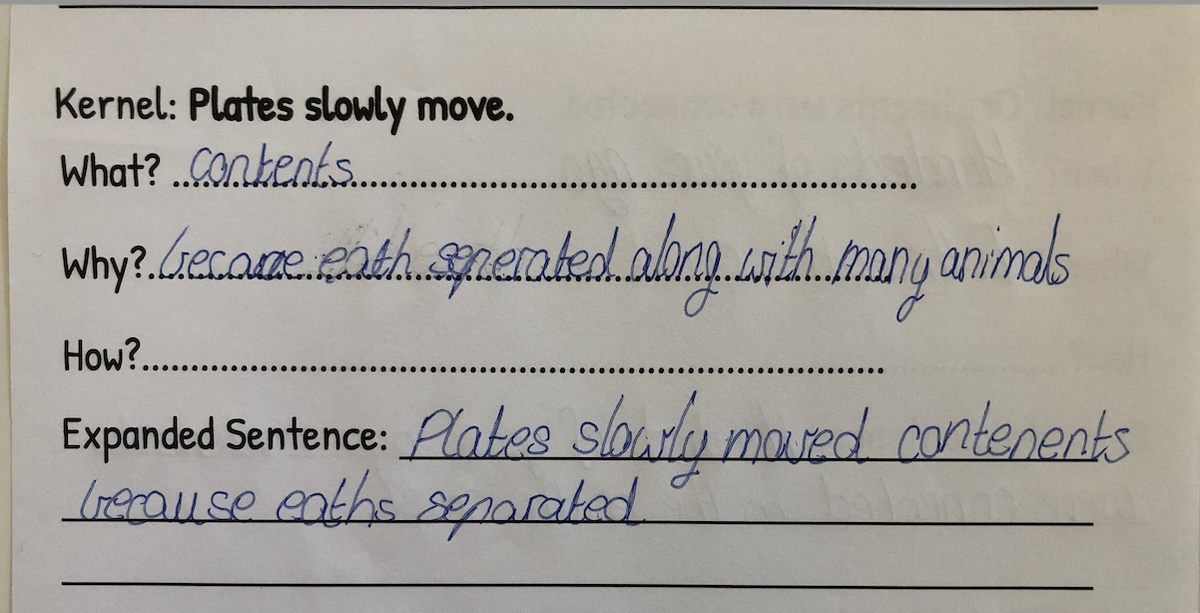 Kernel: Plates slowly move.
What? contents
Why? because eath seperated along with many animals
How?
Expanded Sentence: Plates slowly moved contenents
because eaths separated